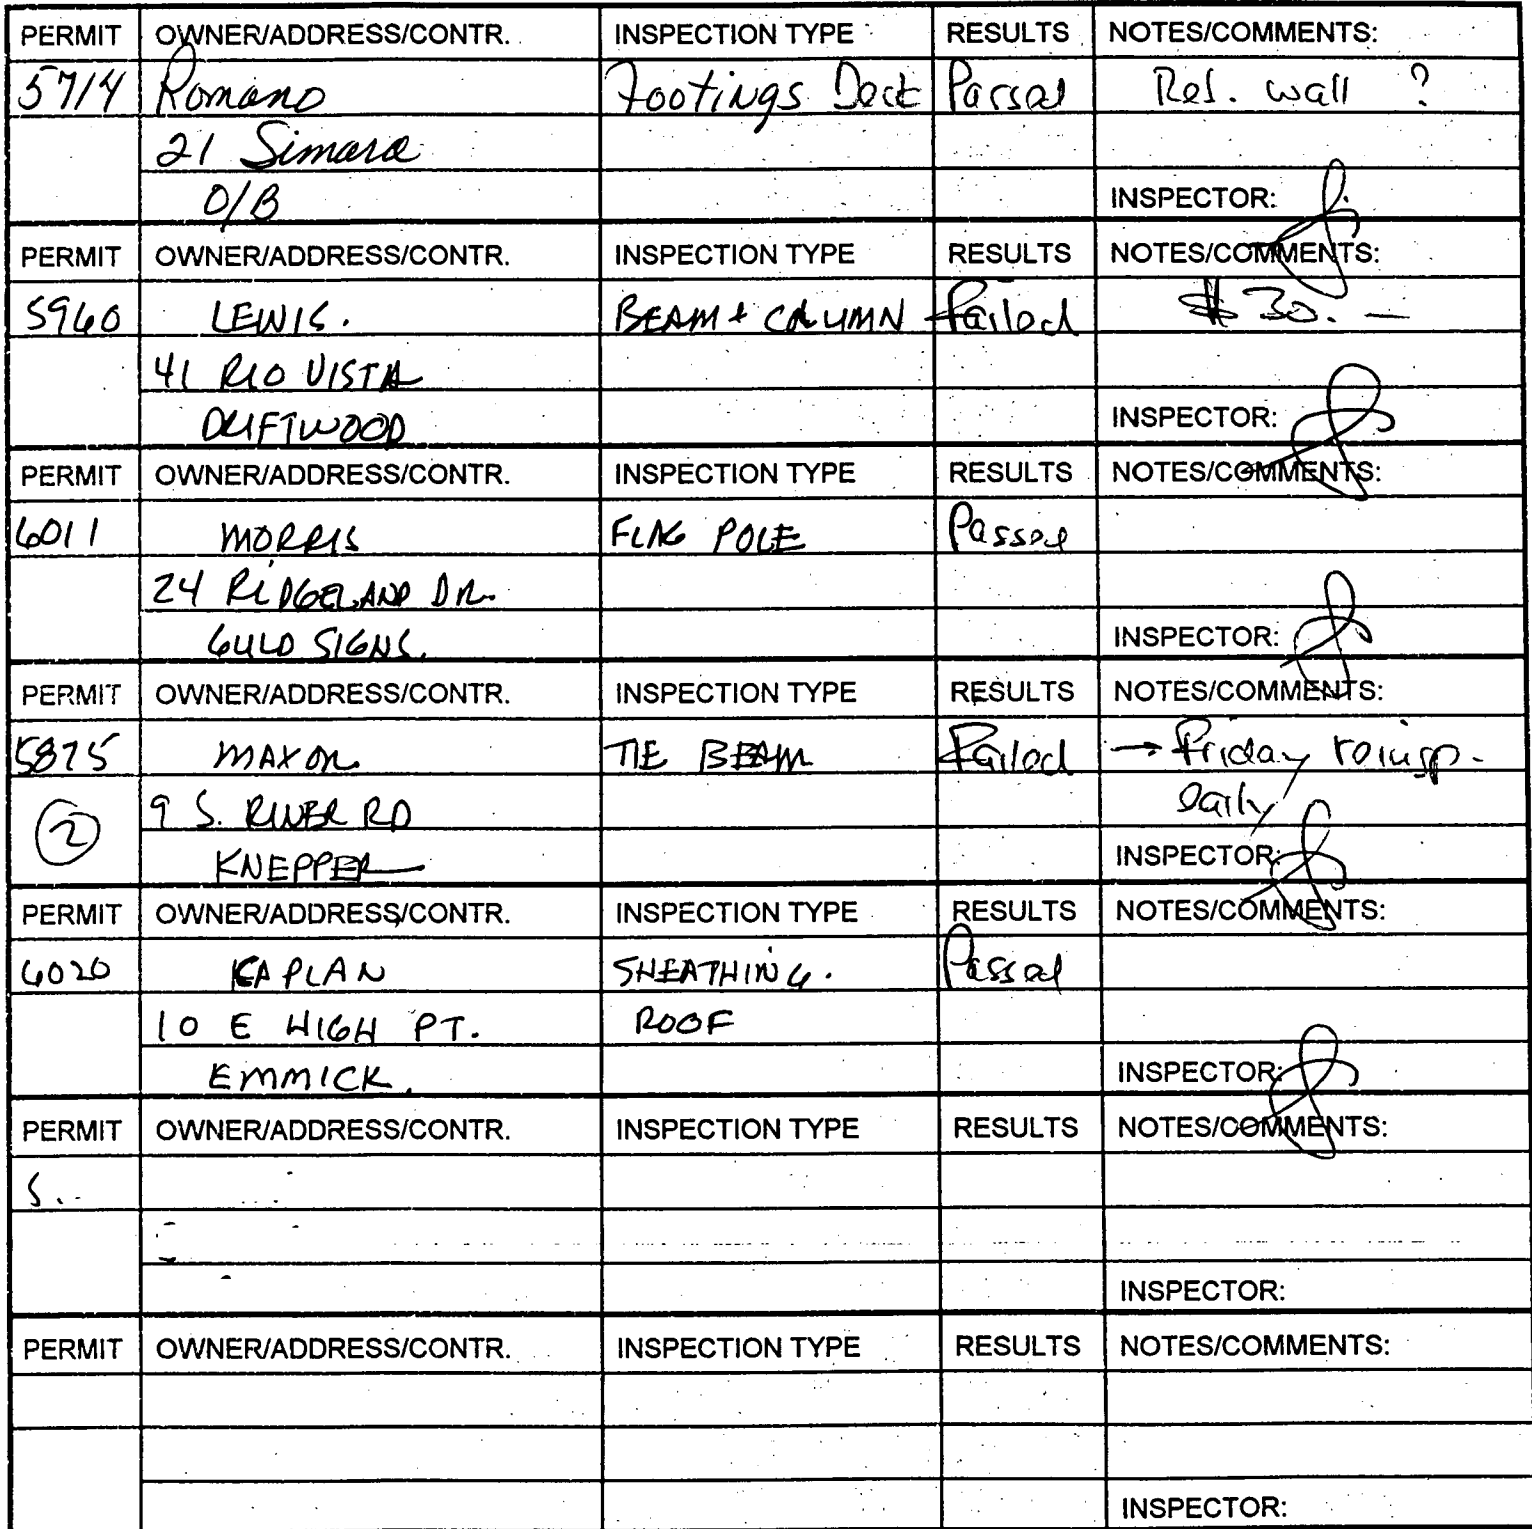 PERMIT OWNER/ADDRESS/CONTR. INSPECTION TYPE RESULTS NOTES/COMMENTS:
5714 Romano Footings Deck Passed Ret. wall ?
21 Simara
O/B INSPECTOR:
PERMIT OWNER/ADDRESS/CONTR. INSPECTION TYPE RESULTS NOTES/COMMENTS:
5960 LEWIS. BEAM + COLUMN Failed $ 30. —
41 RIO VISTA
DRIFTWOOD INSPECTOR:
PERMIT OWNER/ADDRESS/CONTR. INSPECTION TYPE RESULTS NOTES/COMMENTS:
6011 MORRIS FLAG POLE Passed
24 RIDGELAND DR.
GULD SIGNS. INSPECTOR:
PERMIT OWNER/ADDRESS/CONTR. INSPECTION TYPE RESULTS NOTES/COMMENTS:
5875 MAXON TIE BEAM Failed → Friday reinsp.
2 9 S. RIVER RD early
KNEPPER INSPECTOR:
PERMIT OWNER/ADDRESS/CONTR. INSPECTION TYPE RESULTS NOTES/COMMENTS:
6020 KAPLAN SHEATHING. Passed
10 E HIGH PT. ROOF
EMMICK. INSPECTOR:
PERMIT OWNER/ADDRESS/CONTR. INSPECTION TYPE RESULTS NOTES/COMMENTS:
INSPECTOR:
PERMIT OWNER/ADDRESS/CONTR. INSPECTION TYPE RESULTS NOTES/COMMENTS:
INSPECTOR: